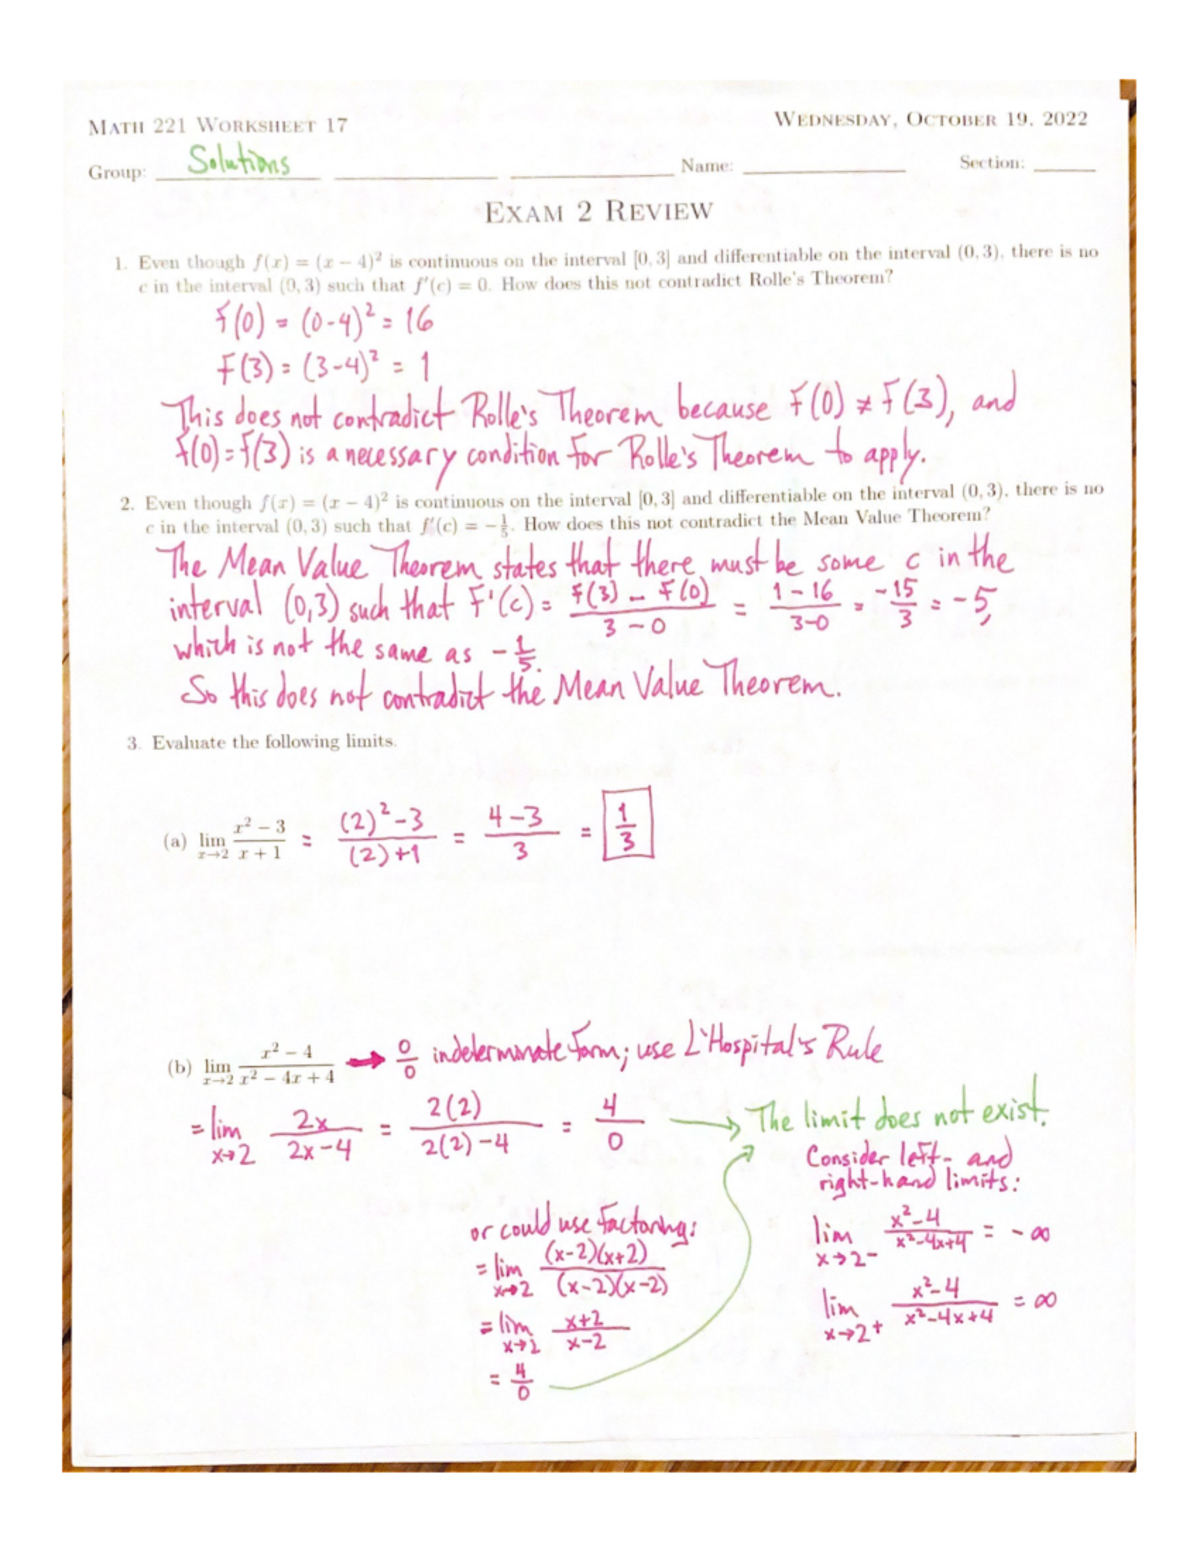 MATH 221 WORKSHEET 17 WEDNESDAY, OCTOBER 19, 2022
Group: Solutions Name: Section:
EXAM 2 REVIEW
1. Even though f(x) = (x − 4)² is continuous on the interval [0, 3] and differentiable on the interval (0, 3), there is no
c in the interval (0, 3) such that f′(c) = 0. How does this not contradict Rolle's Theorem?
f(0) = (0-4)² = 16
f(3) = (3-4)² = 1
This does not contradict Rolle's Theorem because f(0) ≠ f(3), and
f(0) = f(3) is a necessary condition for Rolle's Theorem to apply.
2. Even though f(x) = (x − 4)² is continuous on the interval [0, 3] and differentiable on the interval (0, 3), there is no
c in the interval (0, 3) such that f′(c) = −1/5. How does this not contradict the Mean Value Theorem?
The Mean Value Theorem states that there must be some c in the
interval (0,3) such that f'(c) = (f(3) − f(0))/(3 − 0) = (1 − 16)/(3-0) = -15/3 = -5,
which is not the same as -1/5.
So this does not contradict the Mean Value Theorem.
3. Evaluate the following limits.
(a) lim x→2 (x² − 3)/(x + 1) = ((2)²-3)/((2)+1) = (4-3)/3 = 1/3
(b) lim x→2 (x² − 4)/(x² − 4x + 4) → 0/0 indeterminate form; use L'Hospital's Rule
= lim x→2 2x/(2x-4) = 2(2)/(2(2)-4) = 4/0 → The limit does not exist.
Consider left- and
right-hand limits:
lim x→2⁻ (x²-4)/(x²-4x+4) = -∞
lim x→2⁺ (x²-4)/(x²-4x+4) = ∞
or could use factoring:
= lim x→2 (x-2)(x+2)/(x-2)(x-2)
= lim x→2 (x+2)/(x-2)
= 4/0